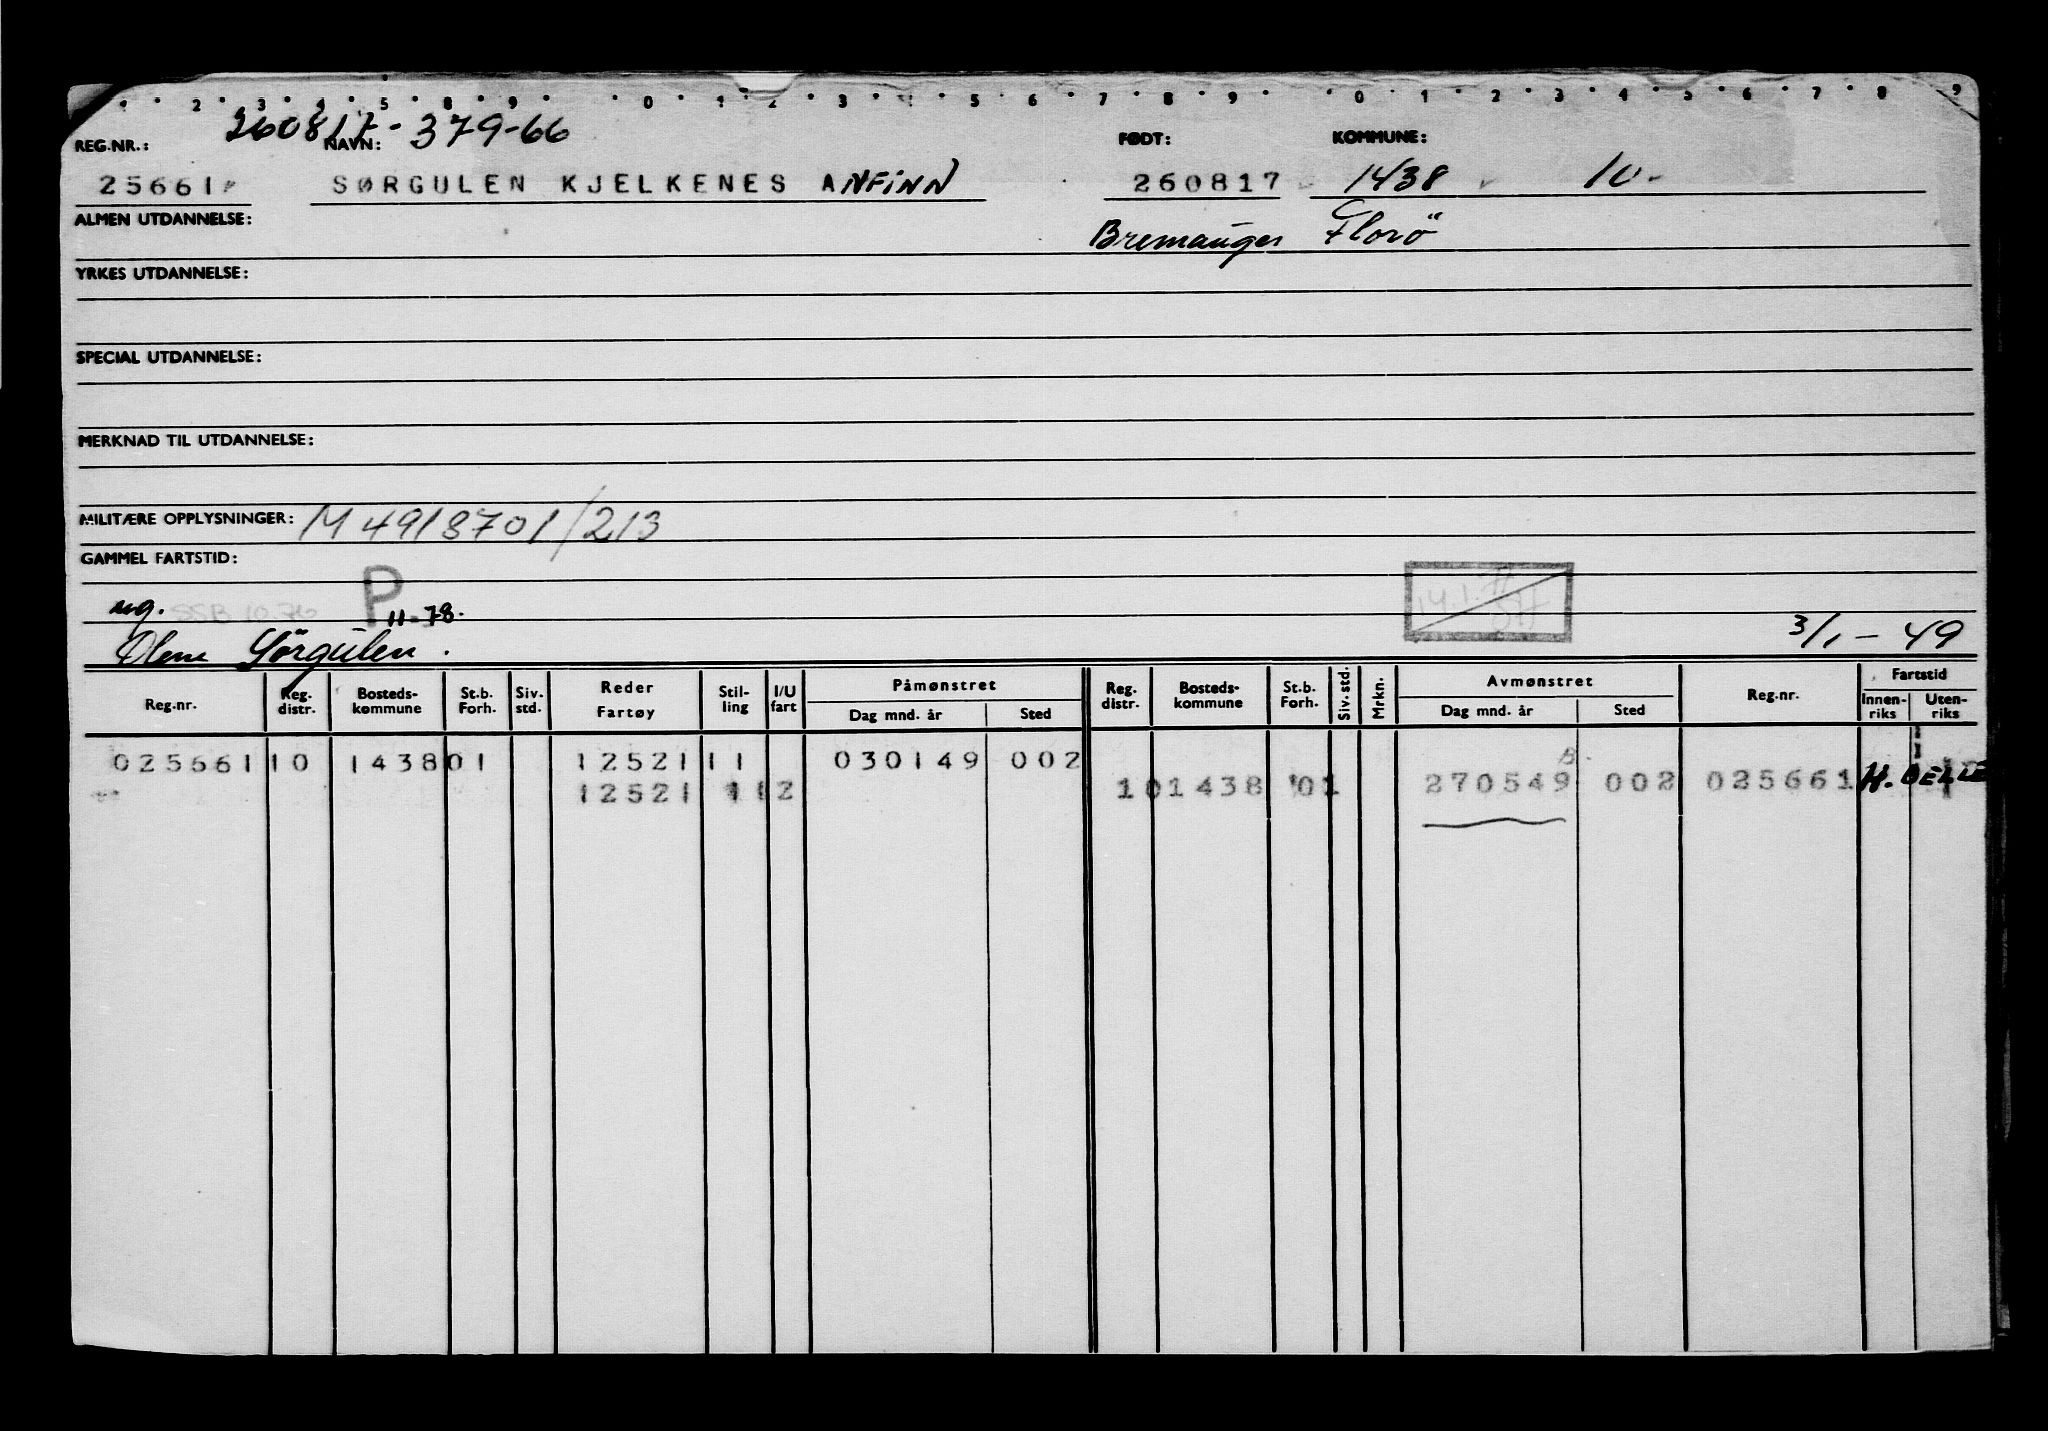 1 2 3 4 5 8 9 0 1 2 3 4 5 6 7 8 9 0 1 2 3 4 5 6 7 8 9
260817-379-66
REG.NR.: NAVN: FØDT: KOMMUNE:
25661 SØRGULEN KJELKENES ANFINN 260817 1438 10-
ALMEN UTDANNELSE: Bremanger Florö
YRKES UTDANNELSE:
SPECIAL UTDANNELSE:
MERKNAD TIL UTDANNELSE:
MILITÆRE OPPLYSNINGER: M 4918701/213
GAMMEL FARTSTID:
ug. SSB 10.76 P 11-78. 14.1.77
Olene Sörgulen. 3/1-49
Reg.nr. Reg. distr. Bosteds-kommune St.b. Forh. Siv. std. Reder Fartøy Stil-ling I/U fart Påmønstret Dag mnd. år Sted Reg. distr. Bosteds-kommune St.b. Forh. Siv. std. Mrkn. Avmønstret Dag mnd. år Sted Reg.nr. Fartstid Innen-riks Uten-riks
025661 10 1438 01 12521 11 030149 002
12521 11 2 10 1438 01 270549 B. 002 025661 H.